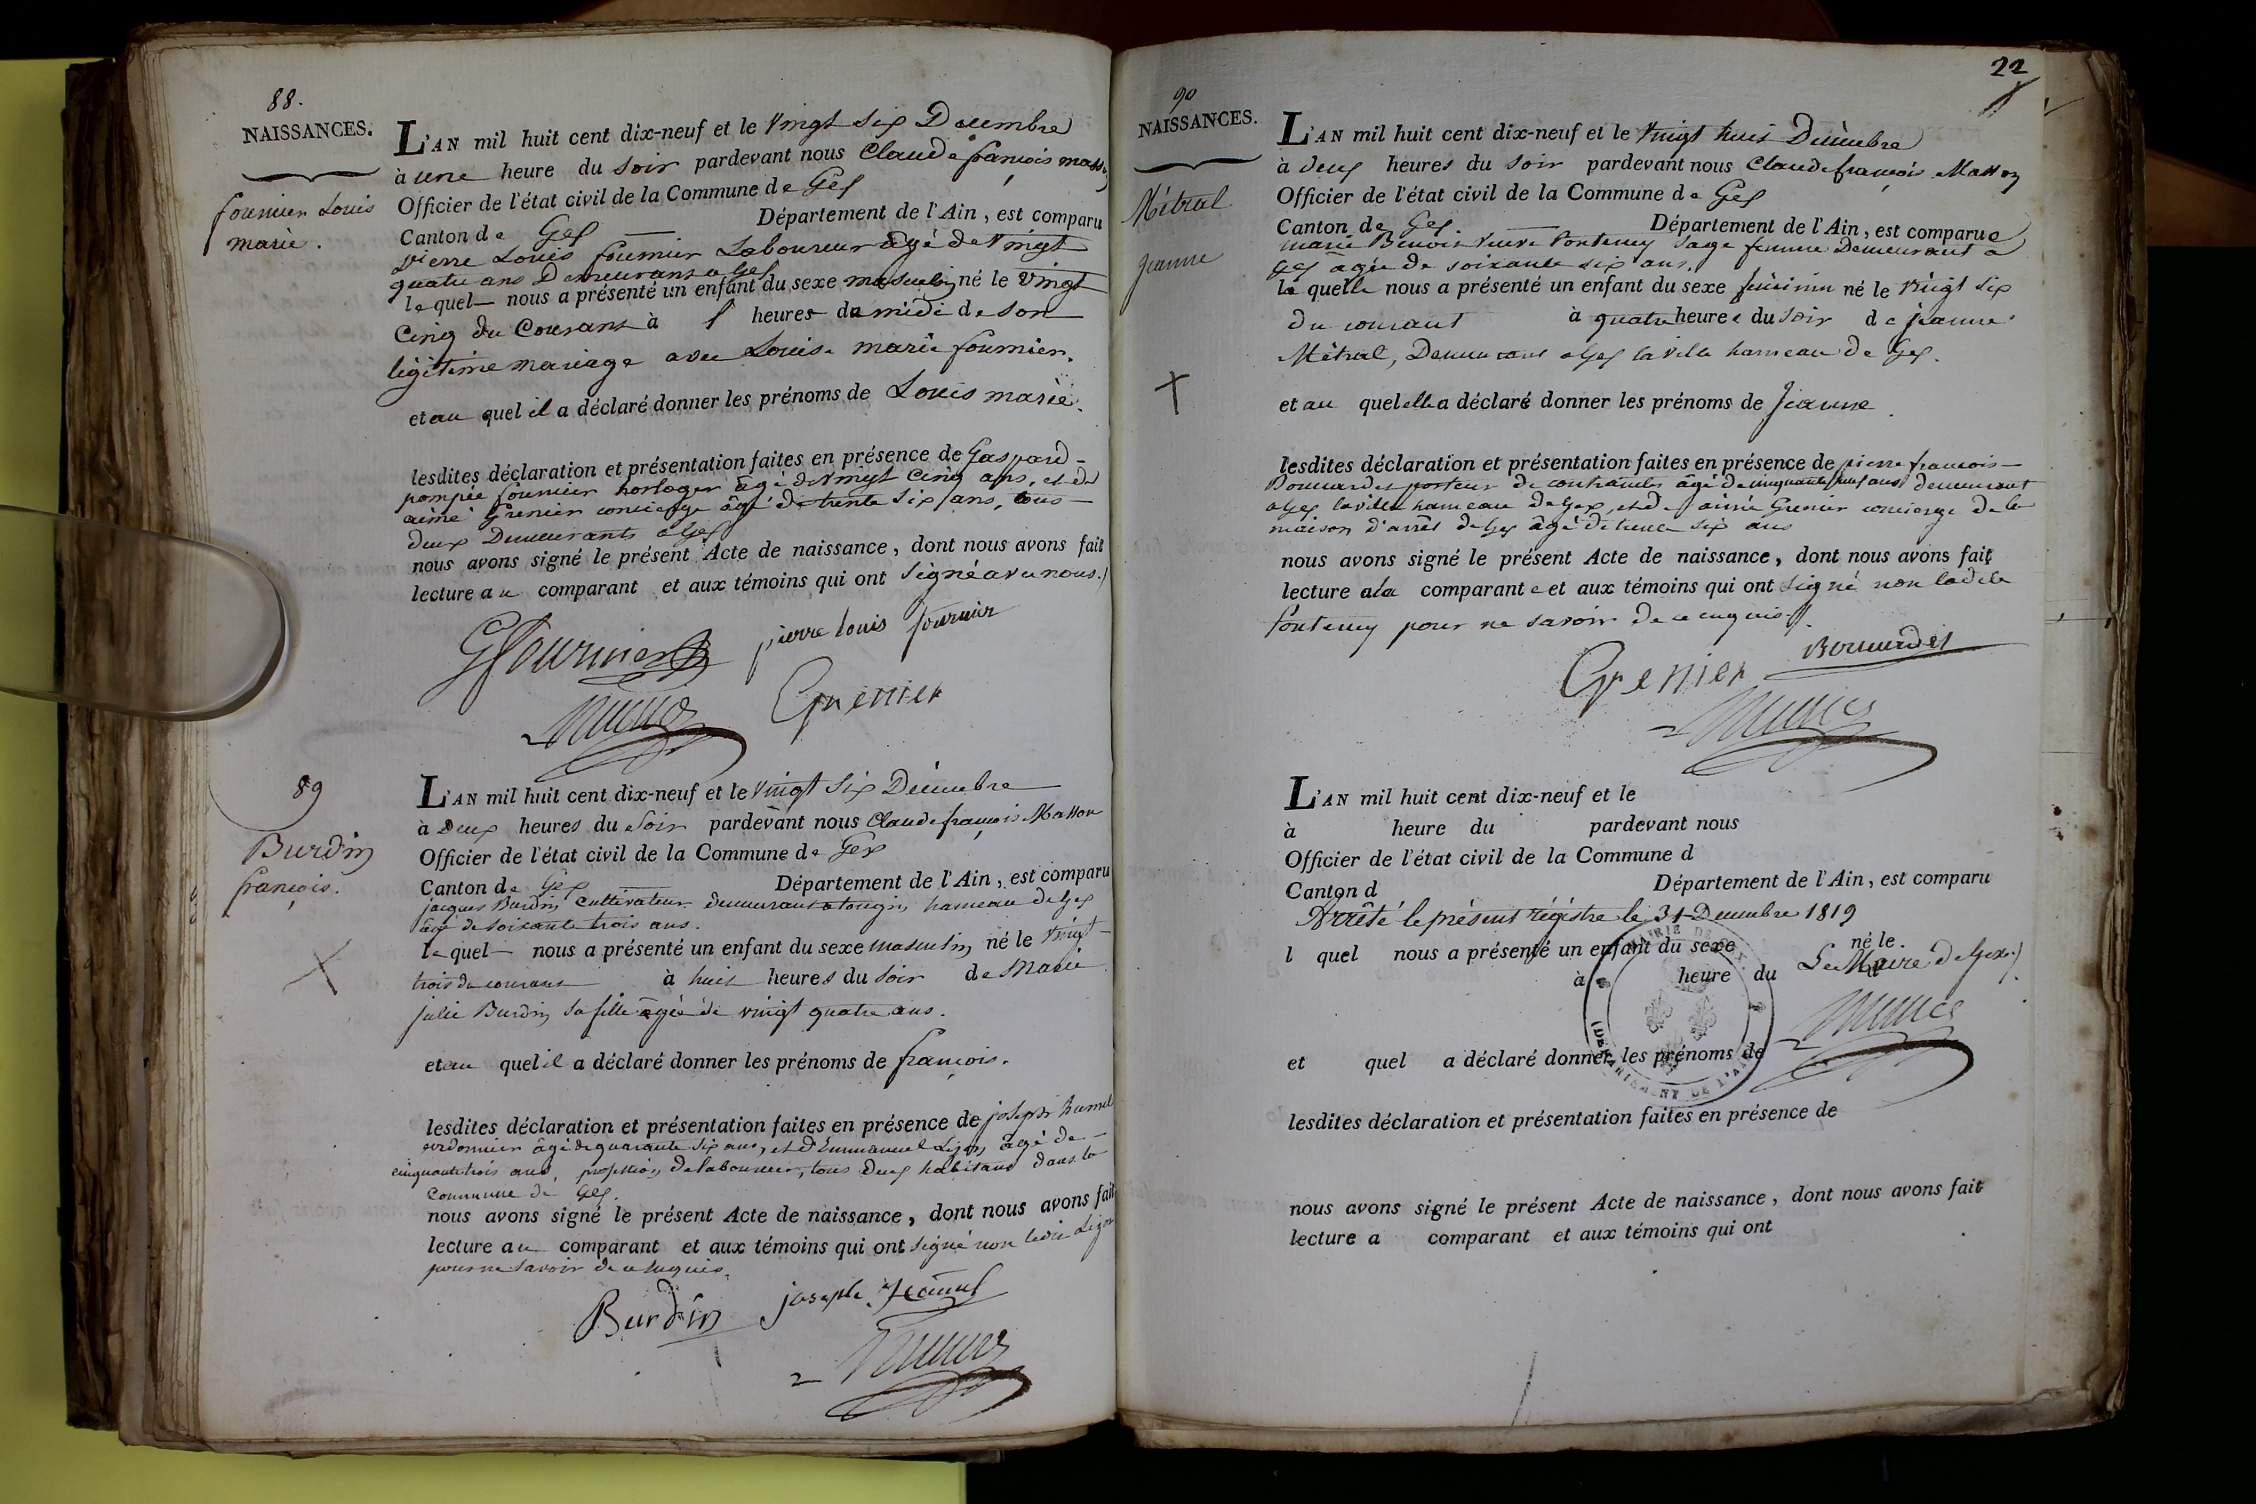 88.
NAISSANCES.
fournier Louis
marie.
L'AN mil huit cent dix-neuf et le Vingt Six Decembre
à une heure du soir pardevant nous Claude françois masson
Officier de l'état civil de la Commune de Gex
Canton de Gex Département de l'Ain, est comparu
pierre Louis fournier Laboureur âgé de Vingt
quatre ans Demeurant a Gex
lequel nous a présenté un enfant du sexe masculin né le Vingt
Cinq du Courant à heures de midi de son
légitime mariage avec Louise marie fournier.
et au quel il a déclaré donner les prénoms de Louis marie.
lesdites déclaration et présentation faites en présence de Gaspard
pompée fournier horloger âgé de Vingt Cinq ans, et de
aimé Grenier concierge âgé de trente six ans, tous
deux Demeurants a Gex
nous avons signé le présent Acte de naissance, dont nous avons fait
lecture au comparant et aux témoins qui ont signé avec nous.
GFournier pierre louis fournier
Grenier
89
Burdin
françois.
L'AN mil huit cent dix-neuf et le Vingt Six Décembre
à Deux heures du soir pardevant nous Claude françois Masson
Officier de l'état civil de la Commune de Gex
Canton de Gex Département de l'Ain, est comparu
jacques Burdin Cultivateur demeurant a tougin hameau de Gex
âgé de soixante trois ans.
lequel nous a présenté un enfant du sexe masculin né le Vingt
trois du courant à huit heures du soir de Marie
julie Burdin sa fille âgée de vingt quatre ans.
et au quel il a déclaré donner les prénoms de françois.
lesdites déclaration et présentation faites en présence de joseph
cordonnier âgé de quarante six ans, et d'Emmanuel Lizon âgé de
cinquante trois ans, profession de laboureur, tous deux habitans dans la
Commune de Gex.
nous avons signé le présent Acte de naissance, dont nous avons fait
lecture au comparant et aux témoins qui ont signé non ledit Lizon
pour ne savoir de ce enquis.
Burdin joseph
90
NAISSANCES.
22
Métral
jeanne
L'AN mil huit cent dix-neuf et le Vingt huit Décembre
à deux heures du soir pardevant nous Claude françois Masson
Officier de l'état civil de la Commune de Gex
Canton de Gex. Département de l'Ain, est comparue
marie Benoit veuve Fontenoy Sage femme Demeurant a
Gex âgée de soixante six ans.
la quelle nous a présenté un enfant du sexe féminin né le Vingt six
du courant à quatre heures du soir de jeanne
Métral, Demeurant a Gex la ville hameau de Gex.
et au quel elle a déclaré donner les prénoms de Jeanne.
lesdites déclaration et présentation faites en présence de pierre francois
porteur de contraintes âgé de cinquante ans demeurant
a Gex la ville hameau de Gex, et de aimé Grenier concierge de la
maison d'arrêt de Gex âgé de trente six ans
nous avons signé le présent Acte de naissance, dont nous avons fait
lecture a la comparante et aux témoins qui ont signé non ladite
Fontenoy pour ne savoir de ce enquis.
Grenier
L'AN mil huit cent dix-neuf et le
à heure du pardevant nous
Officier de l'état civil de la Commune d
Canton d Département de l'Ain, est comparu
Arrêté le présent régistre le 31 Decembre 1819
l quel nous a présenté un enfant du sexe né le
à heure du Le Maire de Gex
MAIRIE DE GEX.
(DÉPARTEMENT DE L'AIN)
et quel a déclaré donner les prénoms de
lesdites déclaration et présentation faites en présence de
nous avons signé le présent Acte de naissance, dont nous avons fait
lecture a comparant et aux témoins qui ont